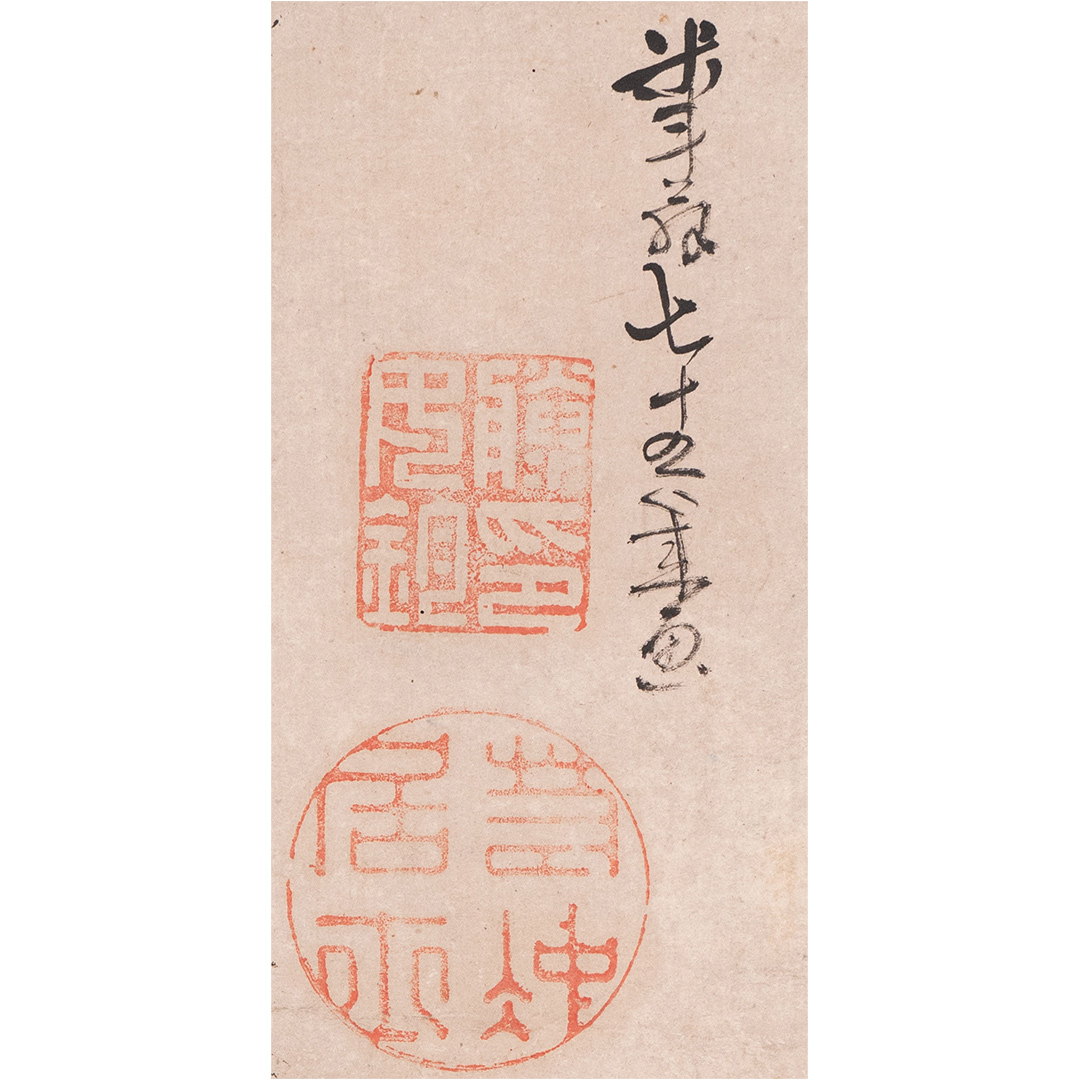 米斗翁七十五歳画
藤汝鈞印
若冲居士